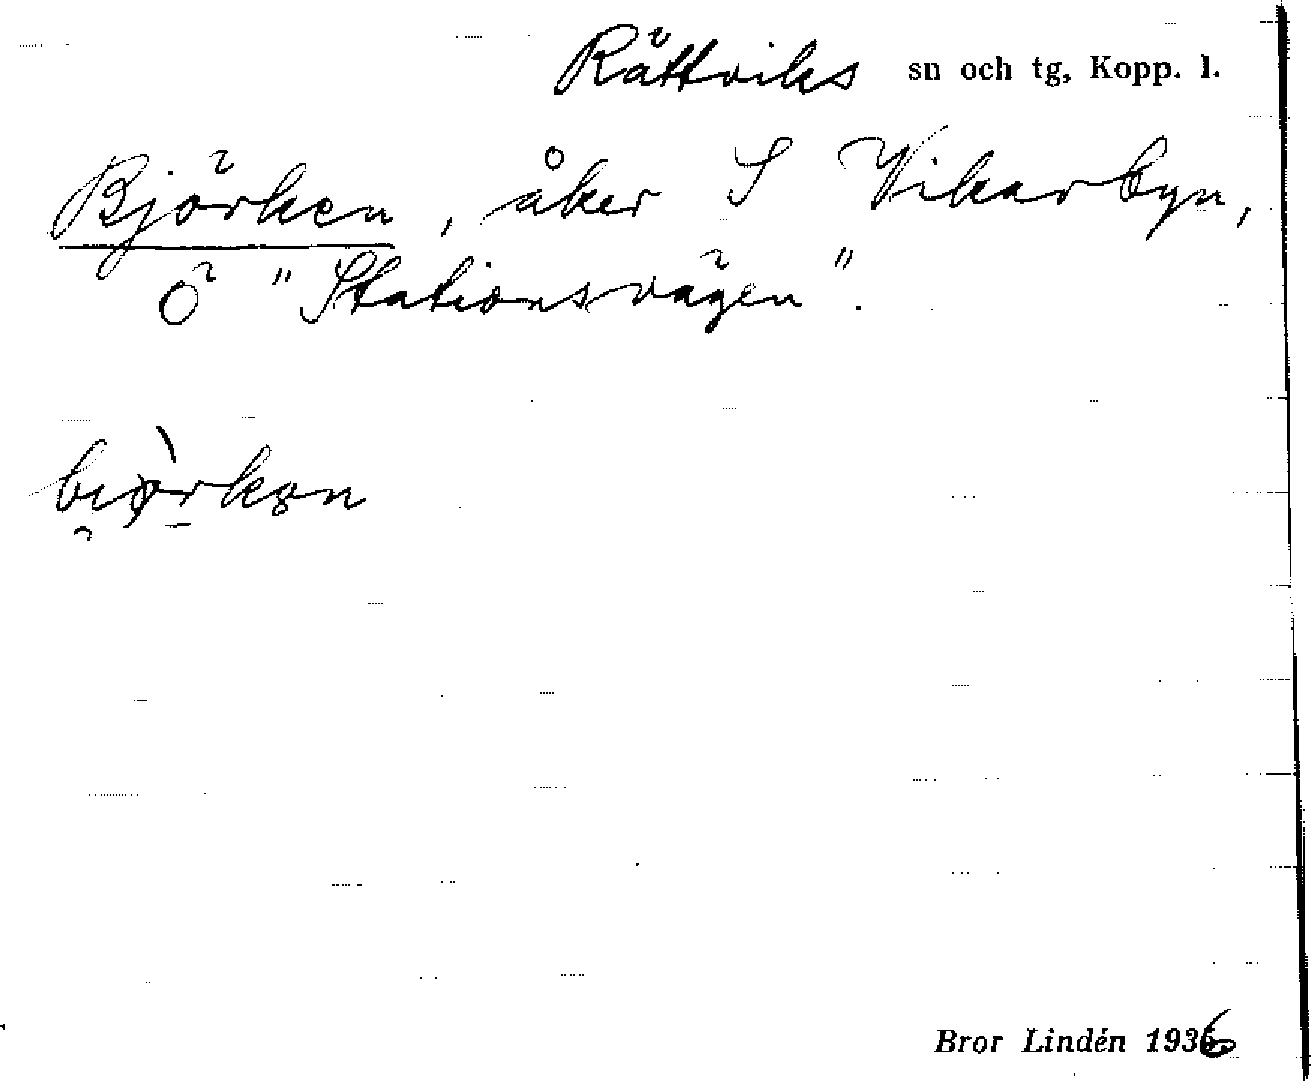 Rättviks sn och tg, Kopp. l.
Björken, åker S Vikarbyn,
Ö "Stationsvägen".
Bror Lindén 1936